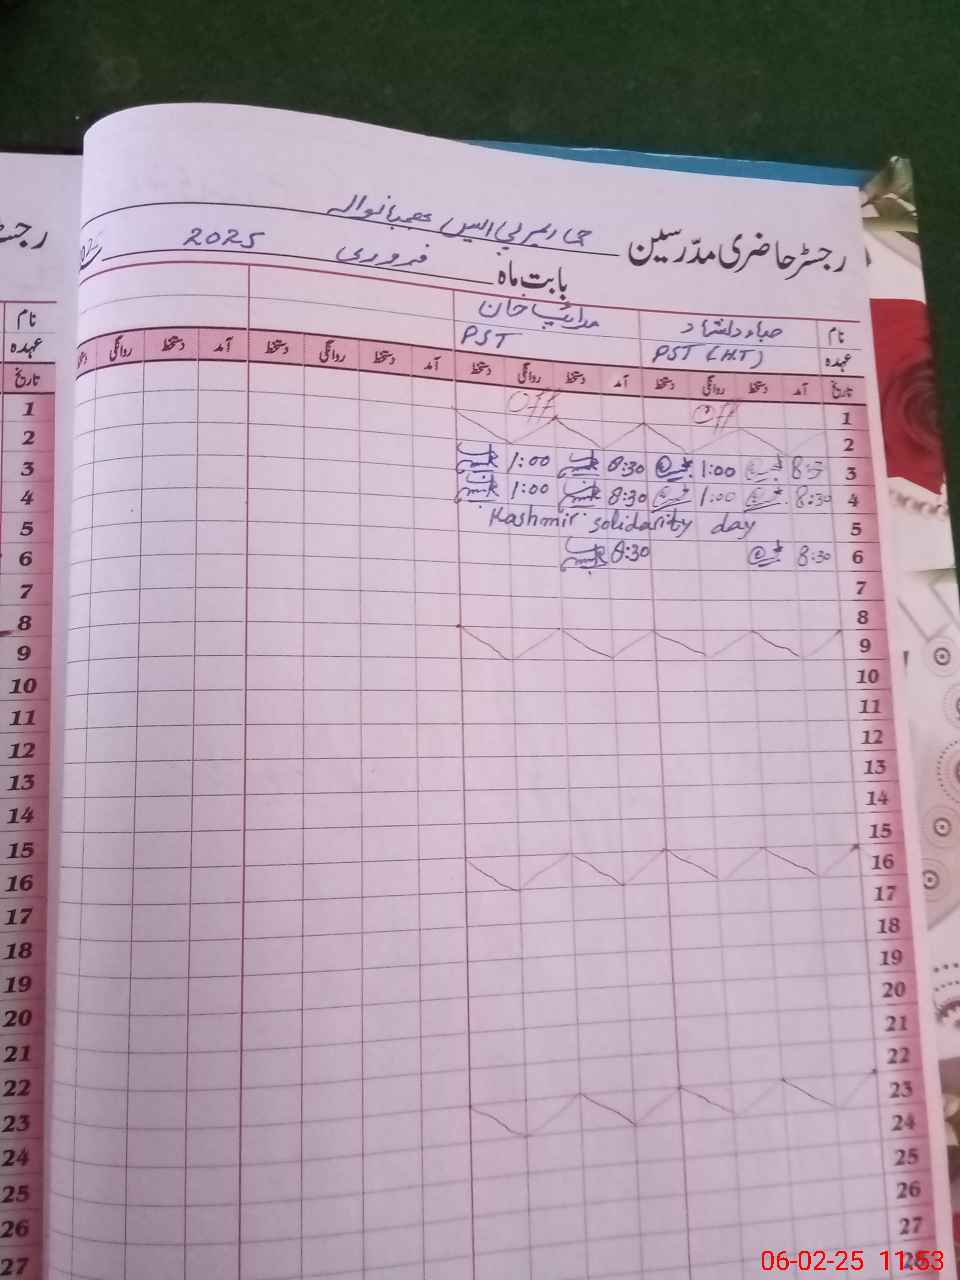 رجسٹر حاضری مدرسین جی ایم پی ایس
بابت ماہ فروری 2025
نام صباء دلشاد خان
عہدہ PST (H.T) PST
تاریخ آمد دستخط روانگی دستخط آمد دستخط روانگی دستخط آمد دستخط روانگی دستخط آمد دستخط روانگی
1 Off Off
2
3 8:3 1:00 8:30 1:00
4 8:30 1:00 8:30 1:00
5 Kashmir solidarity day
6 8:30 8:30
7
8
9
10
11
12
13
14
15
16
17
18
19
20
21
22
23
24
25
26
27
28
نام
عہدہ
تاریخ
1
2
3
4
5
6
7
8
9
10
11
12
13
14
15
16
17
18
19
20
21
22
23
24
25
26
27
06-02-25 11:53